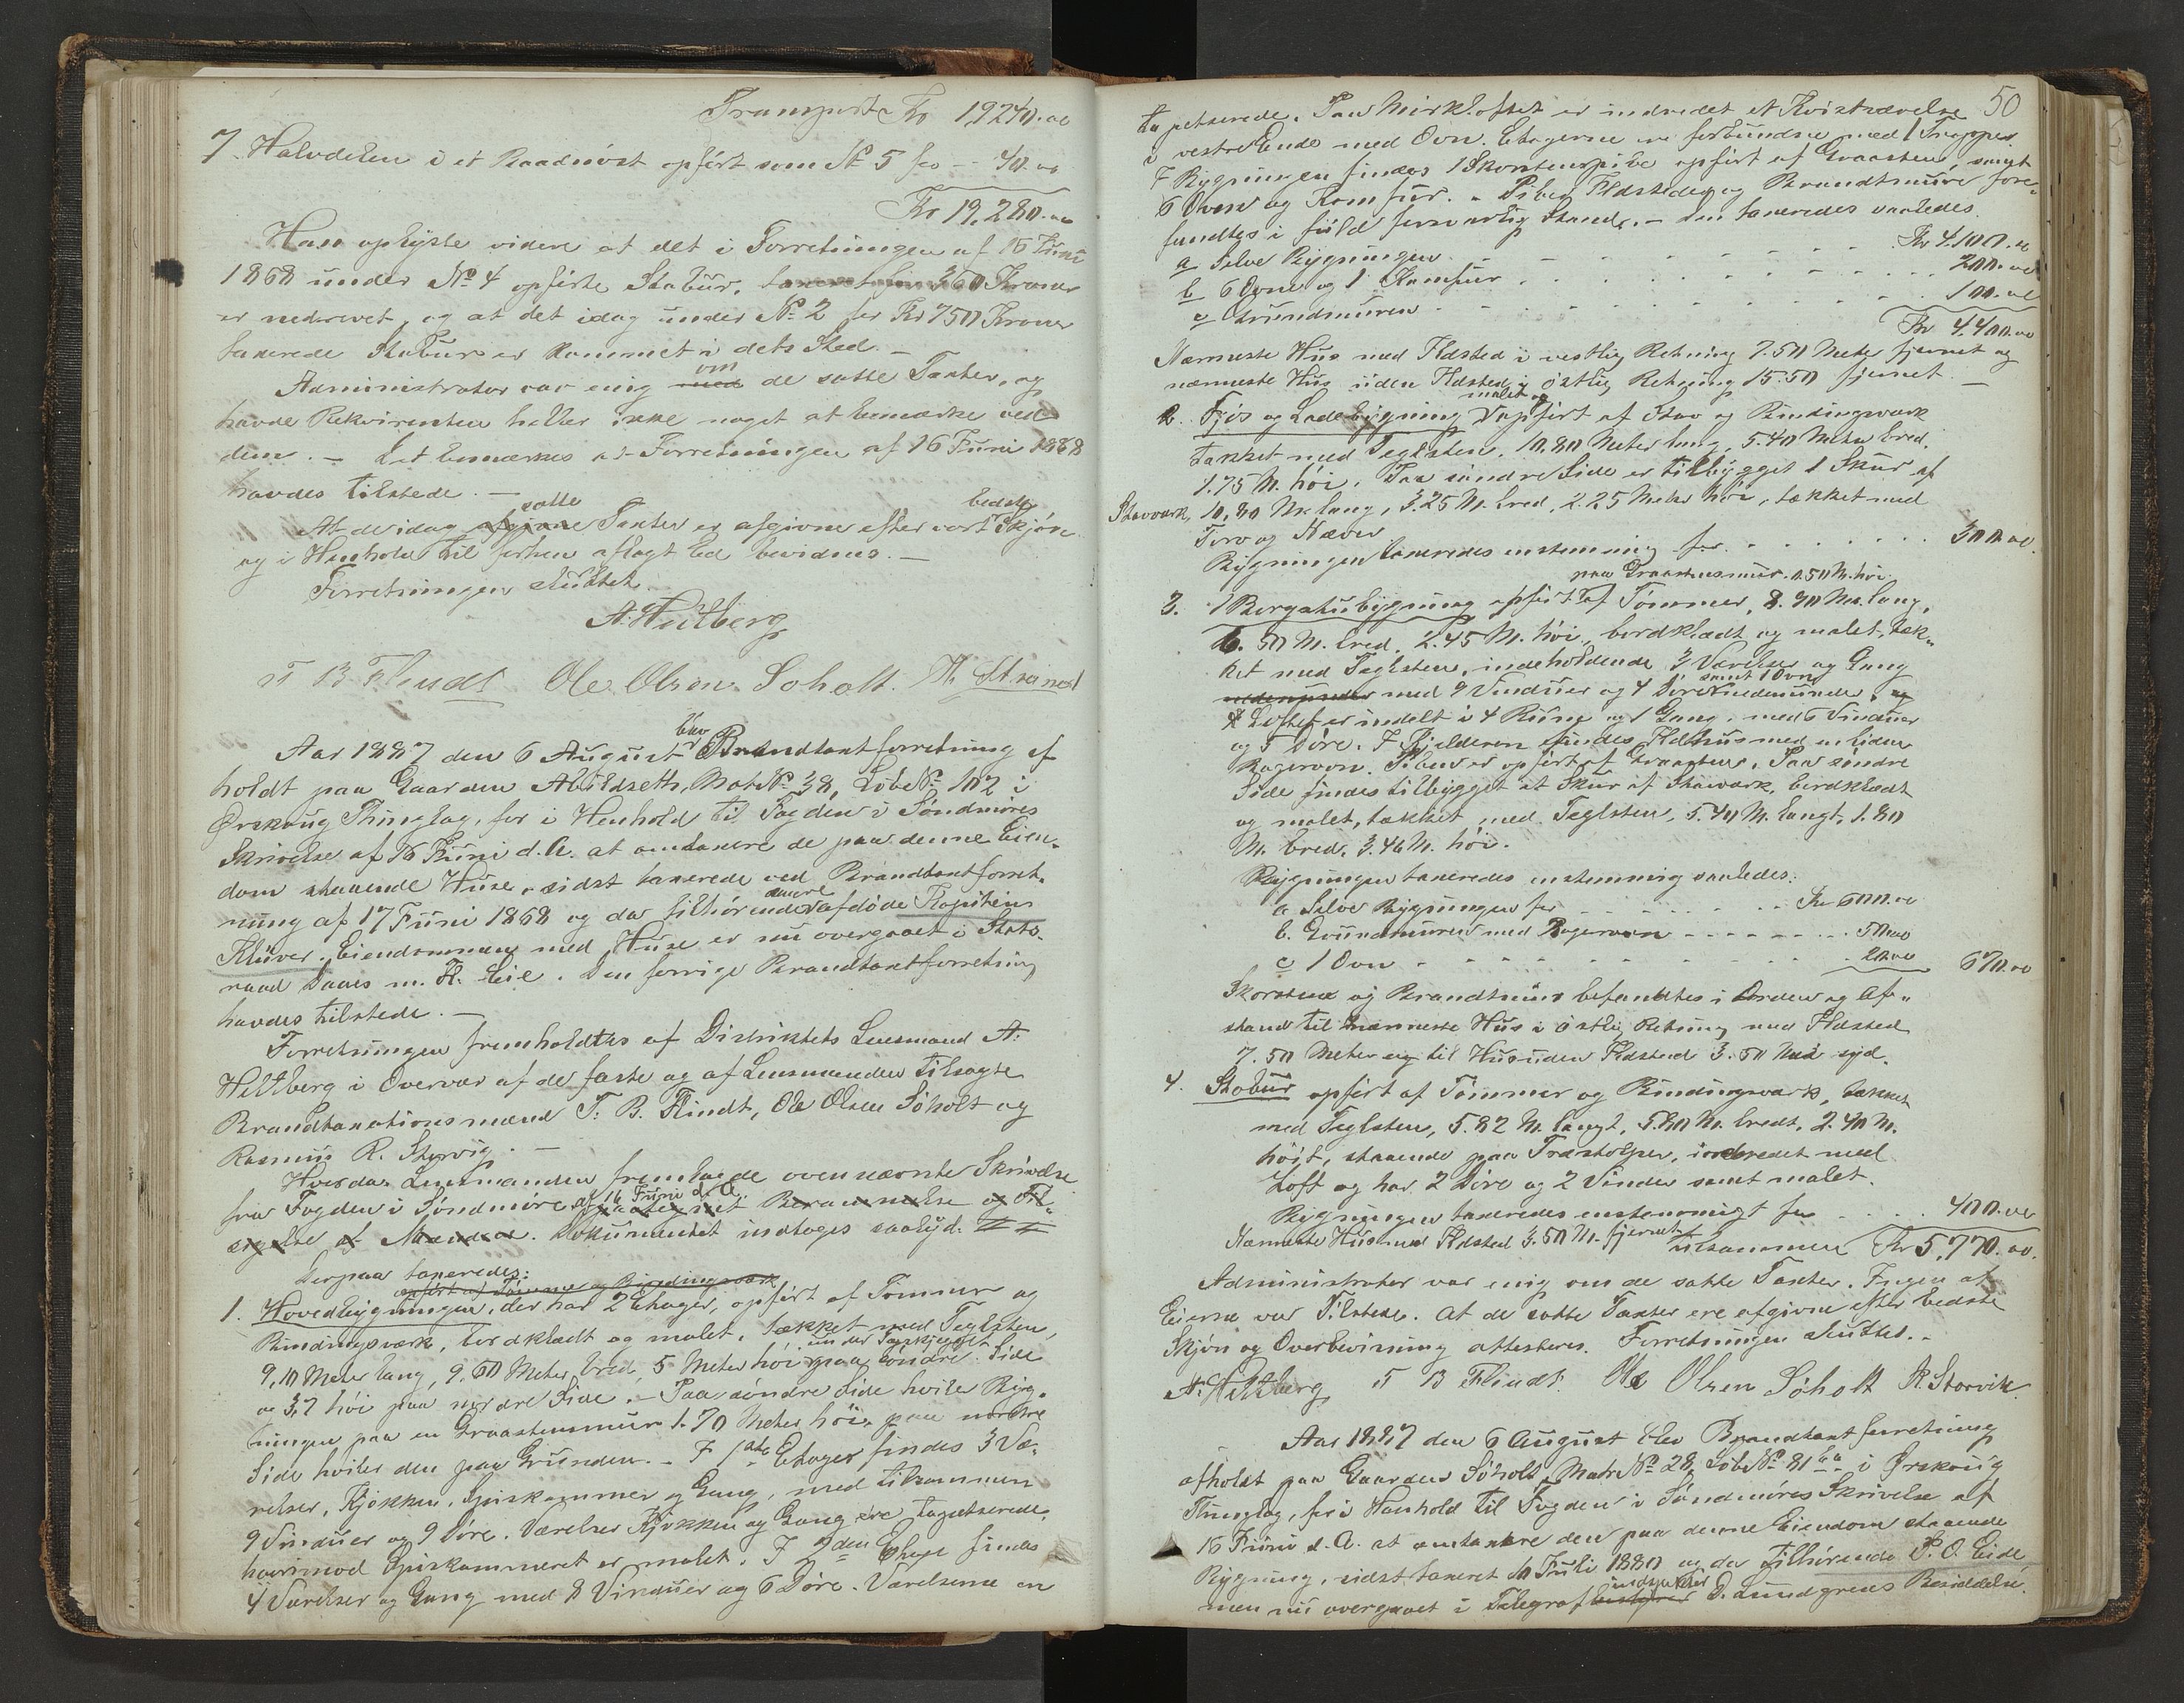 Transport Kr 19240.00
7. Halvdelen i et Baadnøst opført som No 5 for -- 40.00
Kr 19,280.00
Han oplyste videre at det i Forretningen af 16 Juni
1868 under No 4 opførte Stabur, taxeret for 360 Kroner
er nedrevet, og at det idag under No 2 for Kr 750 Kroner
taxerede Stabur er kommet i dets Sted. _
om
Administrator var enig med de satte Taxter, og
havde Rekvirenten heller ikke noget at bemærke ved
dem. _ Det bemærkes at Forretningen af 16 Juni 1868
havdes tilstede. _
satte bedste
At de idag afgivne Taxter er afgivne efter vort Skjøn
og i Henhold til forhen aflagt Ed bevidnes. _
Forretningen sluttet
A. Heltberg
T B Flindt Ole Olsen Søholt. R. Strand
blev
Aar 1887 den 6 August Brandtaxtforretning af
holdt paa Gaarden Abildseth, Mat No 38, Løbe No 102 i
Ørskoug Thinglag, for i Henhold til Fogden i Søndmøres
Skrivelse af 16 Juni d. A. at omtaxere de paa denne Eien-
dom staaende Huse, sidst taxerede ved Brandtaxtforret-
ning af 17 Juni 1868 og da tilhørende afdøde Kapitein
Klüver. Eiendommen med Huse er nu overgaaet i Stats-
raad Daaes m. Fl. Eie. Den forrige Brandtaxtforretning
havdes tilstede. _
Forretningen fremholdtes af Distriktets Lensmand A.
Heltberg i Overvær af de faste og af Lensmanden tilsagte
Brandtaxationsmænd T. B. Flindt, Ole Olsen Søholt og
Rasmus R. Storvig. _
Hvorda Lensmanden fremlagde ovennævnte Skrivelse
af 16 Juni d. A.
fra Fogden i Søndmøre paategnet Berammelse og Til-
sigelse af Mændene. Dokumentet indtages saalyd.
Derpaa taxeredes:
opført af Tømmer og Bindingsværk
1. Hovedbygningen, der har 2 Etager, opført af Tømmer og
Bindingsværk, bordklædt og malet, tækket med Teglsten,
under Tagskjegget
9,10 Meter lang, 9.60 Meter bred, 5 Meter høi paa søndre Side
og 3,7 høi paa nordre Side. _ Paa søndre Side hviler Byg-
ningen paa en Graastensmur 1.70 Meter høi, paa nordre
Side hviler den paa Grunden. _ I 1ste Etage findes 3 Væ-
relser, Kjøkken, Spiskammer og Gang, med tilsammen
9 Vinduer og 9 Døre. Værelser Kjøkken og Gang ere tapetserede,
hvorimod Spiskammeret er malet. I 2den Etage findes
4 Værelser og Gang med 8 Vinduer og 6 Døre. Værelserne er
50
tapetserede. Paa Mørkloftet er indredet et Kvistværelse
i vestre Ende med Ovn. Etagerne er forbundne med 1 Trappe.
I Bygningen findes 1 Skorstenspibe opført af Graasten, samt
6 Ovne og Komfur. _ Piben Ildsteder og Brandmure fore-
fandtes i fuld forsvarlig Stand. _ Den taxeredes saaledes.
a Selve Bygningen - - - Kr 4,100.00
b 6 Ovne og 1 Komfur . . . . 200.00
c Grundmuren - - - - 100.00
Kr 4,400.00
Nærmeste Hus med Ildsted i vestlig Retning 7.50 Meter fjernet og
nærmeste Hus uden Ildsted i østlig Retning 15.50 fjernet _
malet og
2. Fjøs og Ladebygning opført af Stav og Bindingsværk
tækket med Teglsten, 10.80 Meter lang, 5.40 Meter bred,
1.75 M. høi. Paa søndre Side er tilbygget 1 Skur af
Stavværk, 10,80 M. lang, 3.25 M. bred, 2.25 Meter høi, tækket med
Torv og Næver
Bygningen taxeredes enstemmig for. . . . . . 300.00
paa Graastensmur 1.50 M. høi.
3. 1 Borgstubygning opført af Tømmer, 8.90 M. lang,
6.50 M. bred, 2.45 M. høi, bordklædt og malet, tæk-
ket med Teglsten, indeholdende 3 Værelser og Gang
samt 1 Ovn
nedenunder med 9 Vinduer og 4 Døre nedenunder, og
Loftet er indelt i 4 Rum og 1 Gang, med 6 Vinduer
og 5 Døre. I Kjelderen findes Ildhus med en liden
Bagerovn. Piben er opført af Graasten. Paa søndre
Side findes tilbygget et Skur af Stavværk, bordklædt
og malet, tækket med Teglsten, 5.40 M. langt, 1.80
M. bred, 3.46 M. høi.
Bygningen taxeredes enstemmig saaledes:
a. Selve Bygningen for - - - - Kr 600.00
b. Grundmuren med Bagerovn - - - - 50.00
c 1 Ovn - - - - 20.00 670.00
Skorstene og Brandmur befandtes i Orden og Af-
stand til nærmeste Hus i østlig Retning med Ildsted
7.50 Meter og til Hus uden Ildsted 3.50 Mod syd.
4. Stabur opført af Tømmer og Bindingsværk, tækket
med Teglsten, 5.82 M. langt, 5.80 M. bredt, 2.40 M.
høit, staaende paa Træstolper, indredet med
Loft og har 2 Døre og 2 Vinduer samt malet.
Bygningen taxeredes enstemmigt for . . . . 400.00
Nærmeste Hus med Ildsted 3.50 M. fjernet
tilsammen Kr 5,770.00.
Administrator var enig om de satte Taxter. Ingen af
Eierne var Tilstede. At de satte Taxter ere afgivne efter bedste
Skjøn og Overbevisning attesteres. Forretningen sluttet. _
A. Heltberg T B Flindt. Ole Olsen Søholt R. Storvik.
Aar 1887 den 6 August blev Brandtaxtforretning
afholdt paa Gaarden Søholt, Matr No 28, Løbe No 81 i Ørskoug
Thinglag, for i Henhold til Fogden i Søndmøres Skrivelse af
16 Juni d. A. at omtaxere den paa denne Eiendom staaende
Bygning, sidst taxeret 10 Juli 1880 og da tilhørende P. O. Eide
indspektør
men nu overgaaet i Telegrafbestyrer D. Lundgrens Besiddelse.